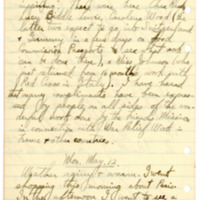 inquiring. They were here Christine
Lucy Biddle Lewis, Carolena Wood (the
latter two expect to go into Switzerland
& Germany in a few days on good
Commission Passports & see that aid
can be done there), a Miss Johnson (who
just returned from 16 months work with
Red Cross in Italy). I have heard
that many compliments have been expressed
(by people on all sides of the
wonderful work done by the Friends Mission
in connection with War Relief Work in
France & other countries.
Mon. May 12.
Weather rainy & warm. I went
shopping this morning about Paris.
In the afternoon I went to see a